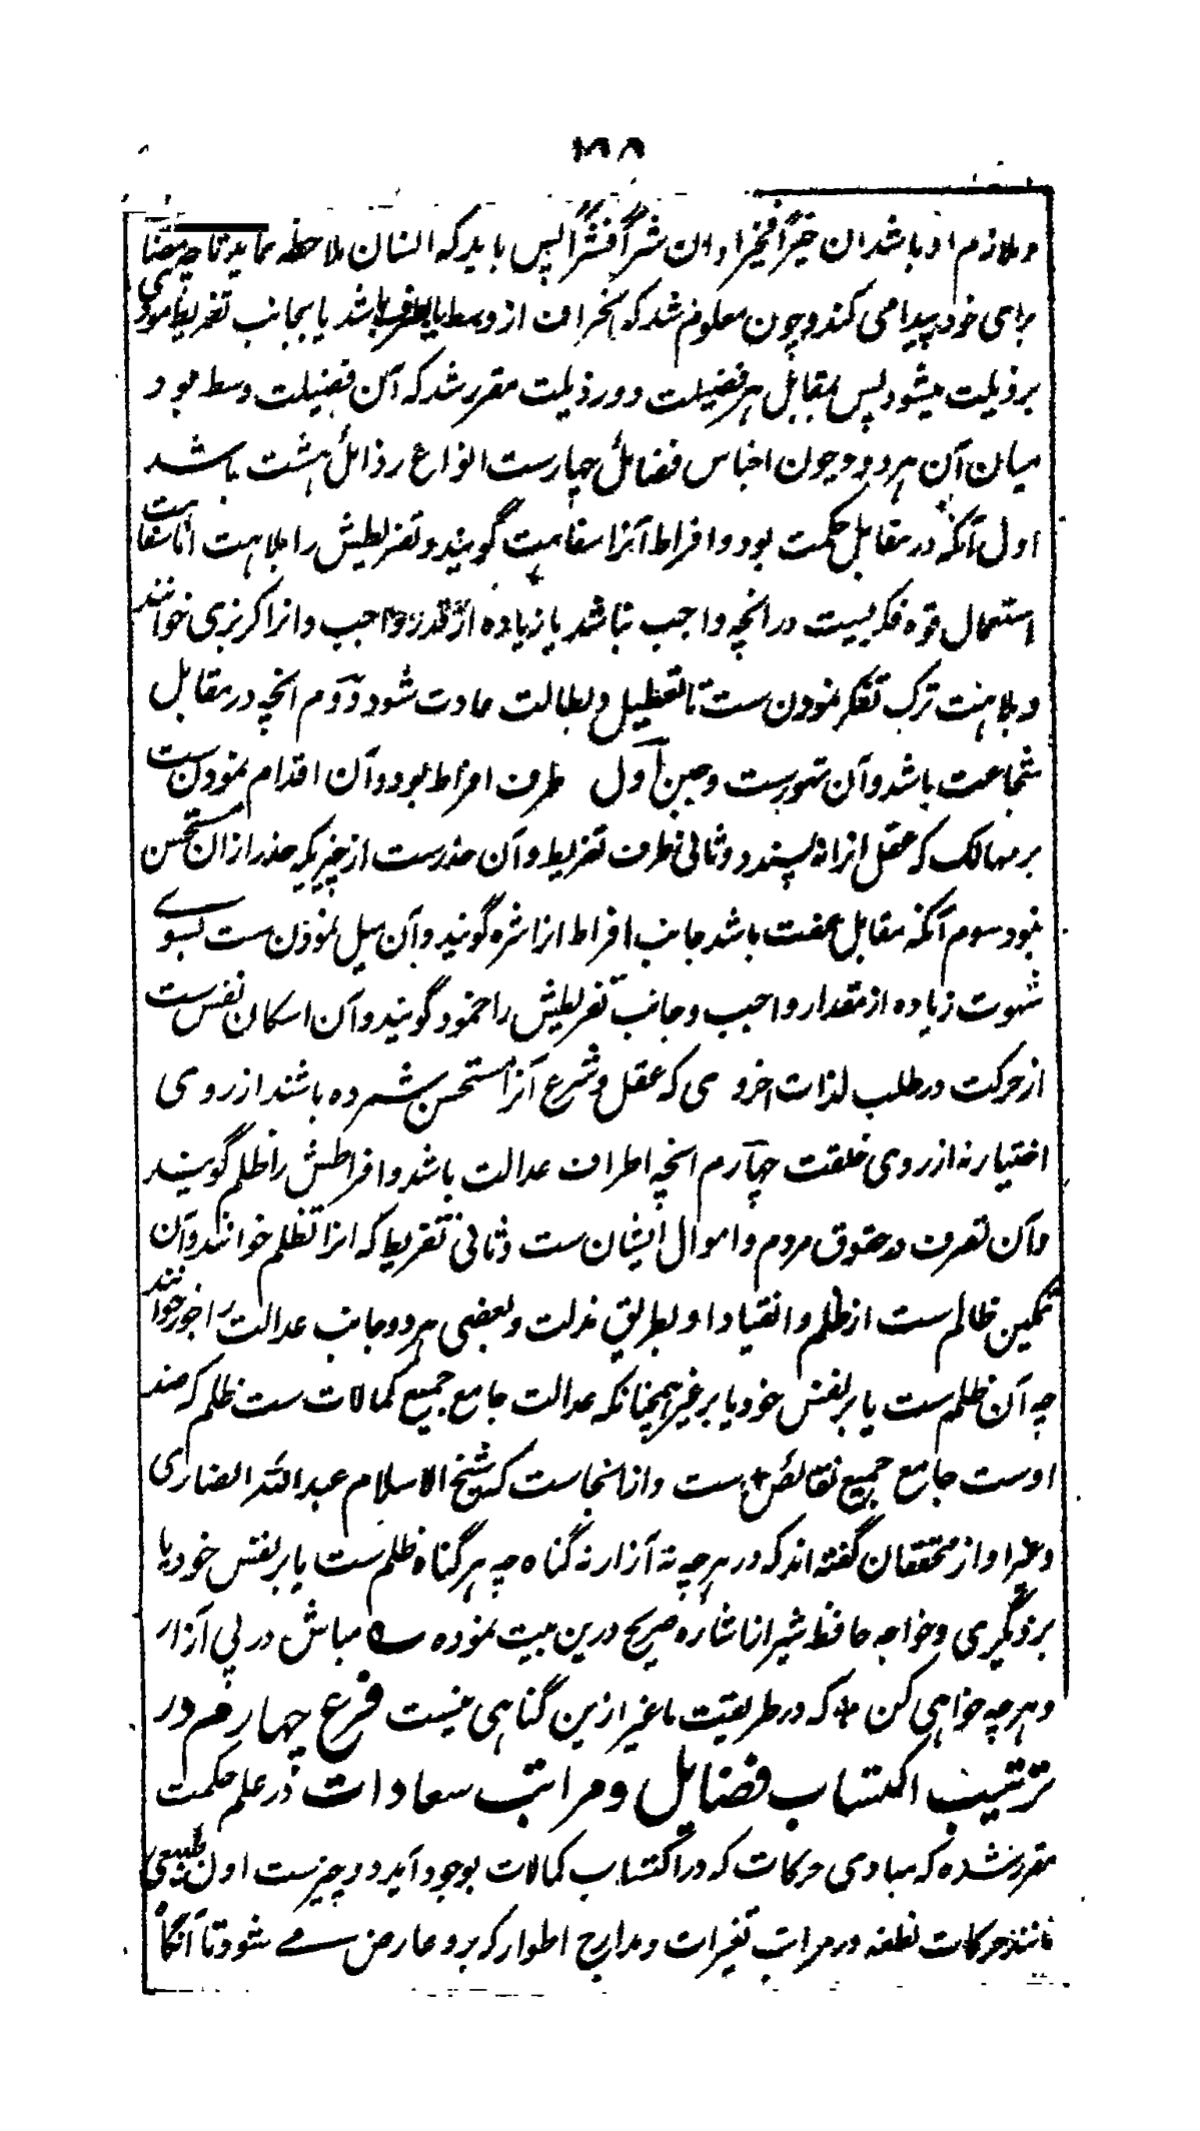 ۱۹۸
و ملازم او باشد ان خیراً فخیرا و ان شراً فشراً پس باید که انسان ملاحظه نماید تا چه
برای خود پیدا می کند و چون معلوم شد که انحراف از وسط باشد یا بجانب تفریط مودی
برذیلت میشود پس بمقابل هر فضیلت دو رذیلت مقرر شد که آن فضیلت وسط بود
میان آن هر دو و چون اجناس فضائل چهارست انواع رذائل هشت باشد
اول آنکه در مقابل حکمت بود و افراط آنرا سفاهت گویند و تفریطش را بلاهت اما سفاهت
استعمال قوه فکریست درانچه واجب نباشد یا زیاده از قدر واجب و انرا کربزی خوانند
و بلاهت ترک تفکر نمودن ست تا تعطیل و بطالت عادت شود دوم انچه در مقابل
شجاعت باشد و آن تهورست و جبن اول طرف افراط بود و آن اقدام نمودن ست
بر مهالک که عقل انرا نه پسندد و ثانی طرف تفریط و آن حذرست از چیزیکه حذر ازان مستحسن
نبود سوم آنکه مقابل عفت باشد جانب افراط انرا شره گویند و آن میل نمودن ست بسوے
شهوت زیاده از مقدار واجب و جانب تفریطش را خمود گویند و آن اسکان نفس ست
از حرکت در طلب لذات اخروی که عقل و شرع آنرا مستحسن شمرده باشند از روی
اختیار نه از روی خلقت چهارم انچه اطراف عدالت باشد و افراطش را ظلم گویند
و آن تصرف در حقوق مردم و اموال ایشان ست و ثانی تفریط که انرا تظلم خوانند و آن
تمکین ظالم ست از ظلم و انقیاد او بطریق مذلت و بعضی هر دو جانب عدالت را جور خوانند
چه آن ظلم ست یا بر نفس خود یا بر غیر همچنانکه عدالت جامع جمیع کمالات ست ظلم که ضد
اوست جامع جمیع نقائص ست و ازانجاست که شیخ الاسلام عبدالله انصاری
و غیر او از محققان گفته اند که در هر چه نه آزار نه گناه چه هر گناه ظلم ست یا بر نفس خود یا
بر دیگری و خواجه حافظ شیراز اشاره صریح درین بیت نموده ؎ مباش در پی آزار
و هر چه خواهی کن * که در طریقت ما غیر ازین گناهی نیست فرع چهارم در
ترتیب اکتساب فضایل و مراتب سعادات در علم حکمت
مقرر شده که مبادی حرکات که در اکتساب کمالات بوجود آید دو چیزست اول طبیعی
مانند حرکات نطفه در مراتب تغیرات و مدارج اطوار که برو عارض مے شود تا آنگاه